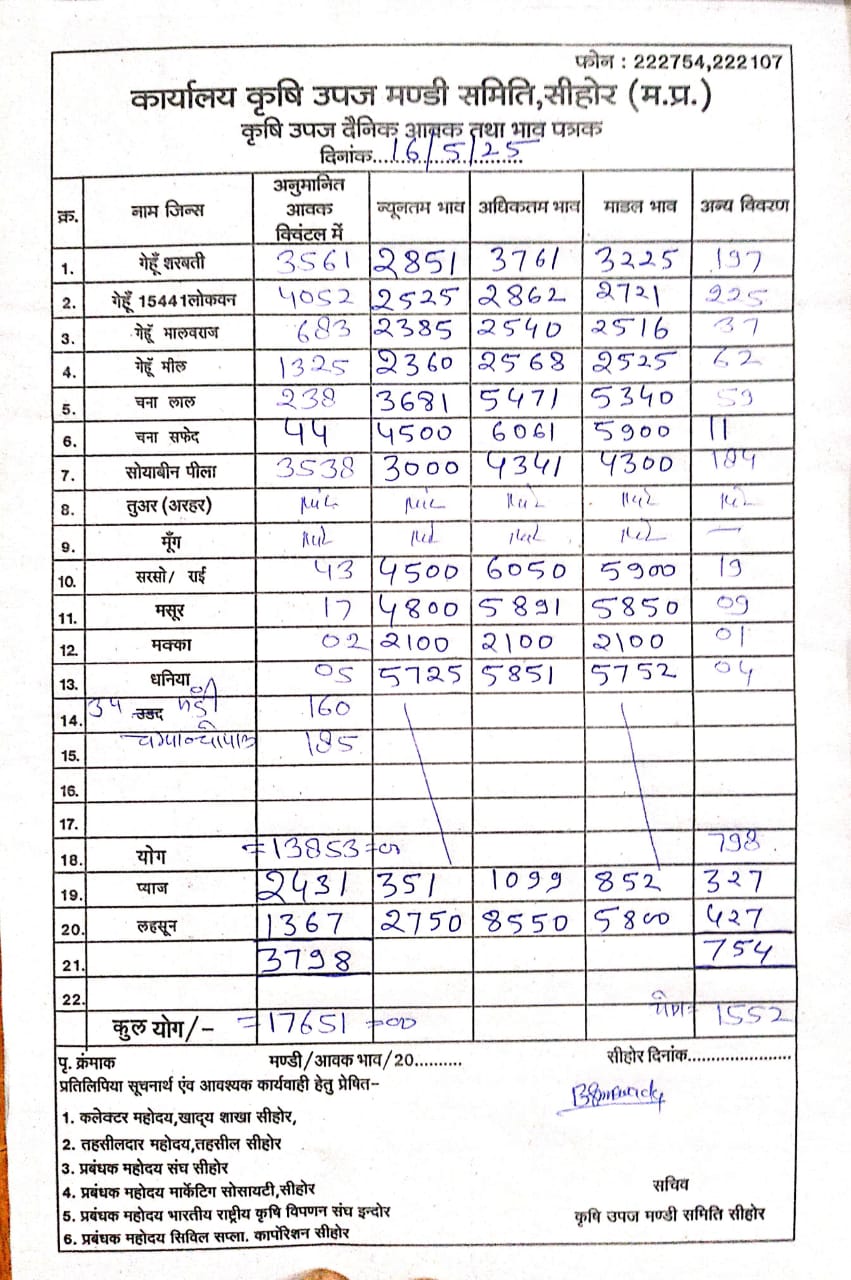 फोन : 222754,222107
कार्यालय कृषि उपज मण्डी समिति,सीहोर (म.प्र.)
कृषि उपज दैनिक आवक तथा भाव पत्रक
दिनांक....16/5/25............
क्र. नाम जिन्स अनुमानित आवक क्विंटल में न्यूनतम भाव अधिकतम भाव माडल भाव अन्य विवरण
1. गेहूँ शरबती 3561 2851 3761 3225 197
2. गेहूँ 15441लोकवन 4052 2525 2862 2721 225
3. गेहूँ मालवराज 683 2385 2540 2516 37
4. गेहूँ मील 1325 2360 2568 2525 62
5. चना लाल 238 3681 5471 5340 59
6. चना सफेद 44 4500 6061 5900 11
7. सोयाबीन पीला 3538 3000 4341 4300 184
8. तुअर (अरहर)
9. मूँग —
10. सरसो/ राई 43 4500 6050 5900 19
11. मसूर 17 4800 5891 5850 09
12. मक्का 02 2100 2100 2100 01
13. धनिया 05 5725 5851 5752 04
14. उप उडद मंडी 160
15. 185
16.
17.
18. योग =13853=00 798
19. प्याज 2431 351 1099 852 327
20. लहसून 1367 2750 8550 5800 427
21. 3798 754
22.
कुल योग/- =17651=00 योग= 1552
पृ. क्रंमाक मण्डी/आवक भाव/20.......... सीहोर दिनांक......................
प्रतिलिपिया सूचनार्थ एंव आवश्यक कार्यवाही हेतु प्रेषित–
1. कलेक्टर महोदय,खाद्य शाखा सीहोर,
2. तहसीलदार महोदय,तहसील सीहोर
3. प्रबंधक महोदय संघ सीहोर
4. प्रबंधक महोदय मार्केटिग सोसायटी,सीहोर
5. प्रबंधक महोदय भारतीय राष्ट्रीय कृषि विपणन संघ इन्दोर
6. प्रबंधक महोदय सिविल सप्ला. कार्पोरेशन सीहोर
सचिव
कृषि उपज मण्डी समिति सीहोर